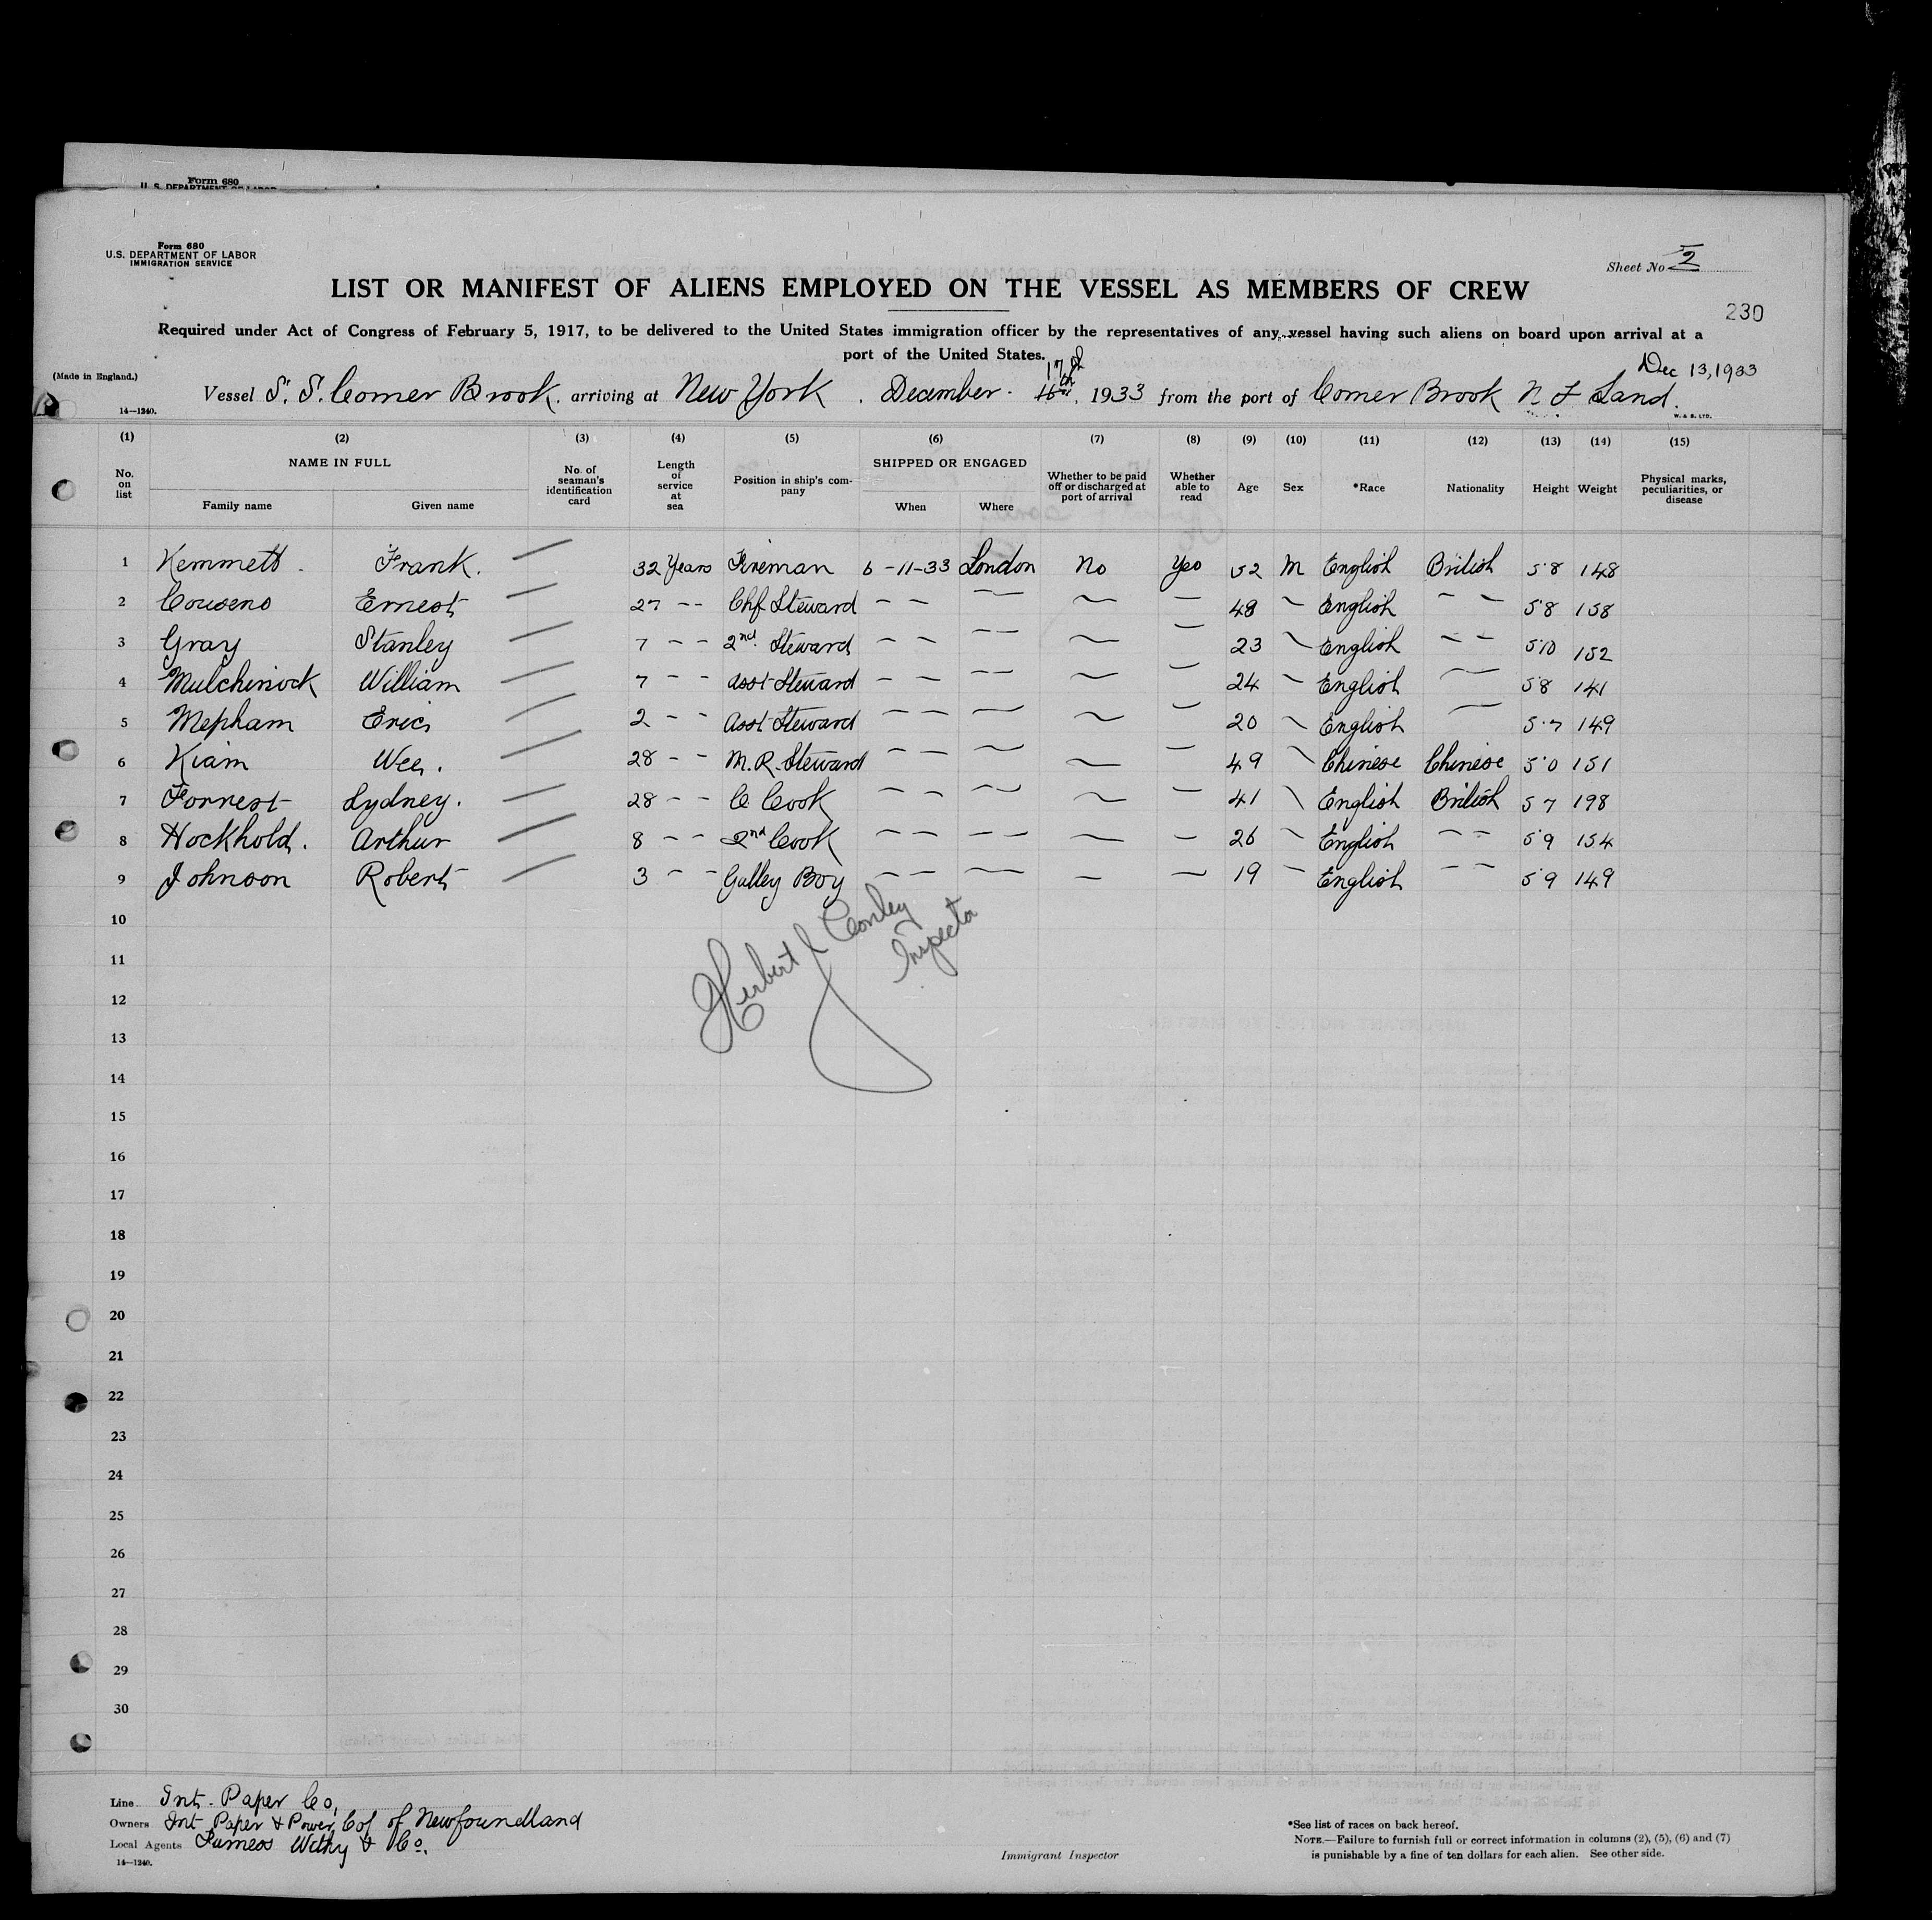 Form 680
U. S. DEPARTMENT OF LABOR
Form 680
U.S. DEPARTMENT OF LABOR
IMMIGRATION SERVICE
Sheet No 2
LIST OR MANIFEST OF ALIENS EMPLOYED ON THE VESSEL AS MEMBERS OF CREW
230
Required under Act of Congress of February 5, 1917, to be delivered to the United States immigration officer by the representatives of any vessel having such aliens on board upon arrival at a
port of the United States.
Dec 13, 1933
(Made in England.)
Vessel S. S. Corner Brook. arriving at New York. December 17th, 1933 from the port of Corner Brook N F Land.
14—1240.
W. & S. LTD.
(1) (2) (3) (4) (5) (6) (7) (8) (9) (10) (11) (12) (13) (14) (15)
No. on list NAME IN FULL Family name Given name No. of seaman's identification card Length of service at sea Position in ship's company SHIPPED OR ENGAGED When Where Whether to be paid off or discharged at port of arrival Whether able to read Age Sex *Race Nationality Height Weight Physical marks, peculiarities, or disease
1 Kemmett Frank. 32 Years Fireman 6-11-33 London No Yes 52 M English British 5'8 148
2 Cousens Ernest 27 - - Chf Steward - - - - 48 - English - - 5'8 158
3 Gray Stanley 7 - - 2nd Steward - - - - 23 - English - - 5'10 152
4 Mulchinock William 7 - - Asst Steward - - - - 24 - English - - 5'8 141
5 Mepham Eric 2 - - Asst Steward - - - - 20 - English - 5'7 149
6 Kiam Wee. 28 - - M. R. Steward - - - - 49 - Chinese Chinese 5'0 151
7 Forrest Sydney. 28 - - C. Cook - - - - 41 - English British 5 7 198
8 Hockhold. Arthur 8 - - 2nd Cook - - - - 26 - English - - 5'9 154
9 Johnson Robert 3 - - Galley Boy - - - - 19 - English - - 5'9 149
10
Herbert J Conley
Inspector
11
12
13
14
15
16
17
18
19
20
21
22
23
24
25
26
27
28
29
30
Line Int. Paper Co,
Owners Int Paper & Power Co of Newfoundland
Local Agents Furness Withy & Co.
14—1240.
Immigrant Inspector
*See list of races on back hereof.
NOTE.—Failure to furnish full or correct information in columns (2), (5), (6) and (7)
is punishable by a fine of ten dollars for each alien. See other side.